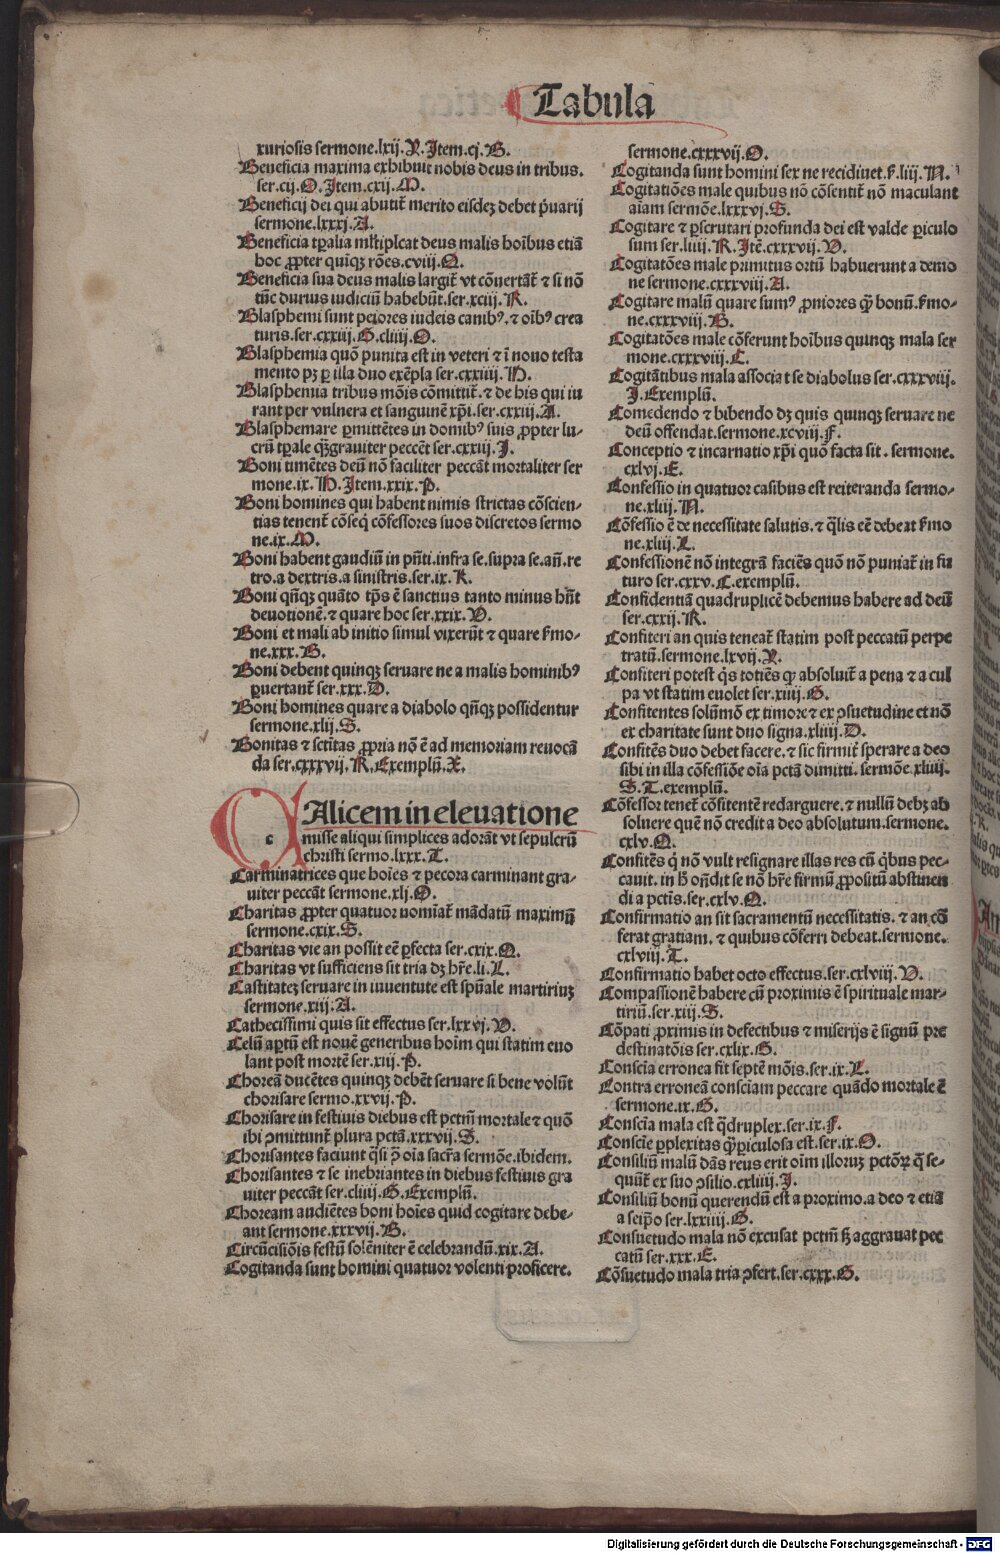 Tabula
xuriosis sermone.lxij.Y.Item.cj.B.
Beneficia maxima exhibuit nobis deus in tribus.
ser.cij.O.Item.cxij.M.
Beneficij dei qui abutit᷑ merito eisdeꝫ debet p̱uarij
sermone.lxxxj.A.
Beneficia tp̄alia ml̄tiplcat deus malis hoībus etiā
hoc ꝓpter quīqꝫ rōes.cviij.Q.
Beneficia sua deus malis largit᷑ vt cōuertāt᷑ ⁊ si nō
tūc durius iudiciū habebūt.ser.xciij.K.
Blasphemi sunt peiores iudeis canibꝰ.⁊ oībꝰ crea
turis.ser.cxxiij.G.cliiij.O.
Blasphemia quō punita est in veteri ⁊ ī nouo testa
mento pꝫ ꝑ illa duo exēpla ser.cxxiiij.H.
Blasphemia tribus mōis cōmittit᷑.⁊ de his qui iu
rant per vulnera et sanguinē xp̄i.ser.cxxiij.A.
Blasphemare ꝑmittētes in domibꝰ suis ꝓpter lu-
crū tp̄ale qꝫgrauiter peccēt ser.cxxiij.I.
Boni timētes deū nō faciliter peccāt mortaliter ser
mone.ix.H.Item.xxix.P.
Boni homines qui habent nimis strictas cōscien-
tias tenent᷑ cōseq̄ cōfessores suos discretos sermo
ne.ix.M.
Boni habent gaudiū in pn̄ti.infra se.supra se.an̄.re
tro.a dextris.a sinistris.ser.ix.K.
Boni qn̄qꝫ quāto tp̄s ē sanctius tanto minus hn̄t
deuotionē.⁊ quare hoc ser.xxix.V.
Boni et mali ab initio simul vixerūt ⁊ quare s̄mo-
ne.xxx.B.
Boni debent quinqꝫ seruare ne a malis hominibꝰ
ꝑuertant᷑ ser.xxx.D.
Boni homines quare a diabolo qn̄qꝫ possidentur
sermone.xlij.S.
Bonitas ⁊ sctītas ꝓpria nō ē ad memoriam reuocā
da ser.cxxxvij.R.Exemplū.X.
CAlicem in eleuatione
c
nusse aliqui simplices adorāt vt sepulcrū
christi sermo.lxxx.T.
Carminatrices que hoīes ⁊ pecora carminant gra-
uiter peccāt sermone.xlj.O.
Charitas ꝓpter quatuor nomīat᷑ mādatū maximū
sermone.cxix.S.
Charitas vie an possit eē ꝑfecta ser.cxix.Q.
Charitas vt sufficiens sit tria dꝫ hr̄e.li.L.
Castitateꝫ seruare in iuuentute est spūale martiriuꝫ
sermone.xiij.A.
Cathecissimi quis sit effectus ser.lxxvj.V.
Celū aꝑtū est nouē generibus hoīm qui statim euo
lant post mortē ser.xiij.P.
Choreā ducētes quinqꝫ debēt seruare si bene volūt
chorisare sermo.xxvij.P.
Chorisare in festiuis diebus est pctm̄ mortale ⁊ quō
ibi ꝯmittunt᷑ plura pctā.xxxvij.S.
Chorisantes faciunt q̄si ꝓ oīa sacr̄a sermōe.ibidem.
Chorisantes ⁊ se inebriantes in diebus festiuis gra
uiter peccāt ser.cliiij.G.Exemplū.
Choream audiētes boni hoīes quid cogitare debe-
ant sermone.xxxvij.B.
Circūcisiōis festū solēniter ē celebrandū.xix.A.
Cogitanda sunt homini quatuor volenti proficere.
sermone.cxxxvij.O.
Cogitanda sunt homini sex ne recidiuet.s̄.liij.N.
Cogitatiōes male quibus nō cōsentit᷑ nō maculant
aīam sermōe.lxxxvj.S.
Cogitare ⁊ ꝑscrutari profunda dei est valde ꝑiculo
sum ser.liiij.K.Itē.cxxxvij.V.
Cogitatōes male primitus ortū habuerunt a demo
ne sermone.cxxxviij.A.
Cogitare malū quare sumꝰ ꝓniores q̄ꝫ bonū.s̄mo-
ne.cxxxviij.B.
Cogitatōes male cōferunt hoībus quinqꝫ mala ser
mone.cxxxviij.C.
Cogitātibus mala associat se diabolus ser.cxxxviij.
I.Exemplū.
Comedendo ⁊ bibendo dꝫ quis quinqꝫ seruare ne
deū offendat.sermone.xcviij.F.
Conceptio ⁊ incarnatio xp̄i quō facta sit.sermone.
cxlvj.E.
Confessio in quatuor casibus est reiteranda sermo-
ne.xliij.N.
Cōfessio ē de necessitate salutis.⁊ q̄lis eē debeat s̄mo
ne.xliij.L.
Confessionē nō integrā faciēs quō nō puniat᷑ in fu
turo ser.cxxv.C.exemplū.
Confidentiā quadruplicē debemus habere ad deū
ser.cxxij.R.
Confiteri an quis teneat᷑ statim post peccatū perpe
tratū.sermone.lxvij.Y.
Confiteri potest q̄s totiēs qꝫ absoluit᷑ a pena ⁊ a cul
pa vt statim euolet ser.xiiij.G.
Confitentes solūmō ex timore ⁊ ex ꝯsuetudine et nō
ex charitate sunt duo signa.xliiij.D.
Confitēs duo debet facere.⁊ sic firmit᷑ sperare a deo
sibi in illa cōfessiōe oīa pctā dimitti.sermōe.xliiij.
S.T.exemplū.
Cōfessor tenet᷑ cōfitentē redarguere.⁊ nullū debꝫ ab
soluere quē nō credit a deo absolutum.sermone.
cxlv.O.
Confitēs q̄ nō vult resignare illas res cū q̄bus pec-
cauit.in h̄ on̄dit se nō hr̄e firmū ꝓpositū abstinen
di a pctis.ser.cxlv.Q.
Confirmatio an sit sacramentū necessitatis.⁊ an cō
ferat gratiam.⁊ quibus cōferri debeat.sermone.
cxlviij.T.
Confirmatio habet octo effectus.ser.cxlviij.V.
Compassionē habere cū proximis ē spirituale mar-
tiriū.ser.xiij.S.
Cōpati ꝓximis in defectibus ⁊ miserijs ē signū pre
destinatōis ser.cxlix.G.
Consciā erronea fit septē mōis.ser.ix.L.
Contra erroneā consciam peccare quādo mortale ē
sermone.ix.G.
Consciā mala est q̄druplex.ser.ix.F.
Conscīe ꝑplexitas q̄ꝫ ꝑiculosa est.ser.ix.O.
Consiliū malū dās reus erit oīm illoruꝫ pctōꝝ q̄ se-
quūt᷑ ex suo ꝯsilio.cxliiij.I.
Consiliū bonū querendū est a proximo.a deo ⁊ etiā
a seip̄o ser.lxxiiij.G.
Consuetudo mala nō excusat pctm̄ sꝫ aggrauat pec
catū ser.xxx.E.
Cōsuetudo mala tria ꝯfert.ser.cxxx.G.
Digitalisierung gefördert durch die Deutsche Forschungsgemeinschaft - DFG